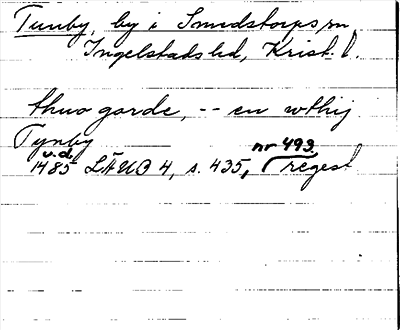 Tunby, by i Smedstorps sn
Ingelstads hd, Krist. l.
thwo garde, -- en wthij
Tynby
u.d.
1485 LÄUB 4, s. 435, nr 493. regest